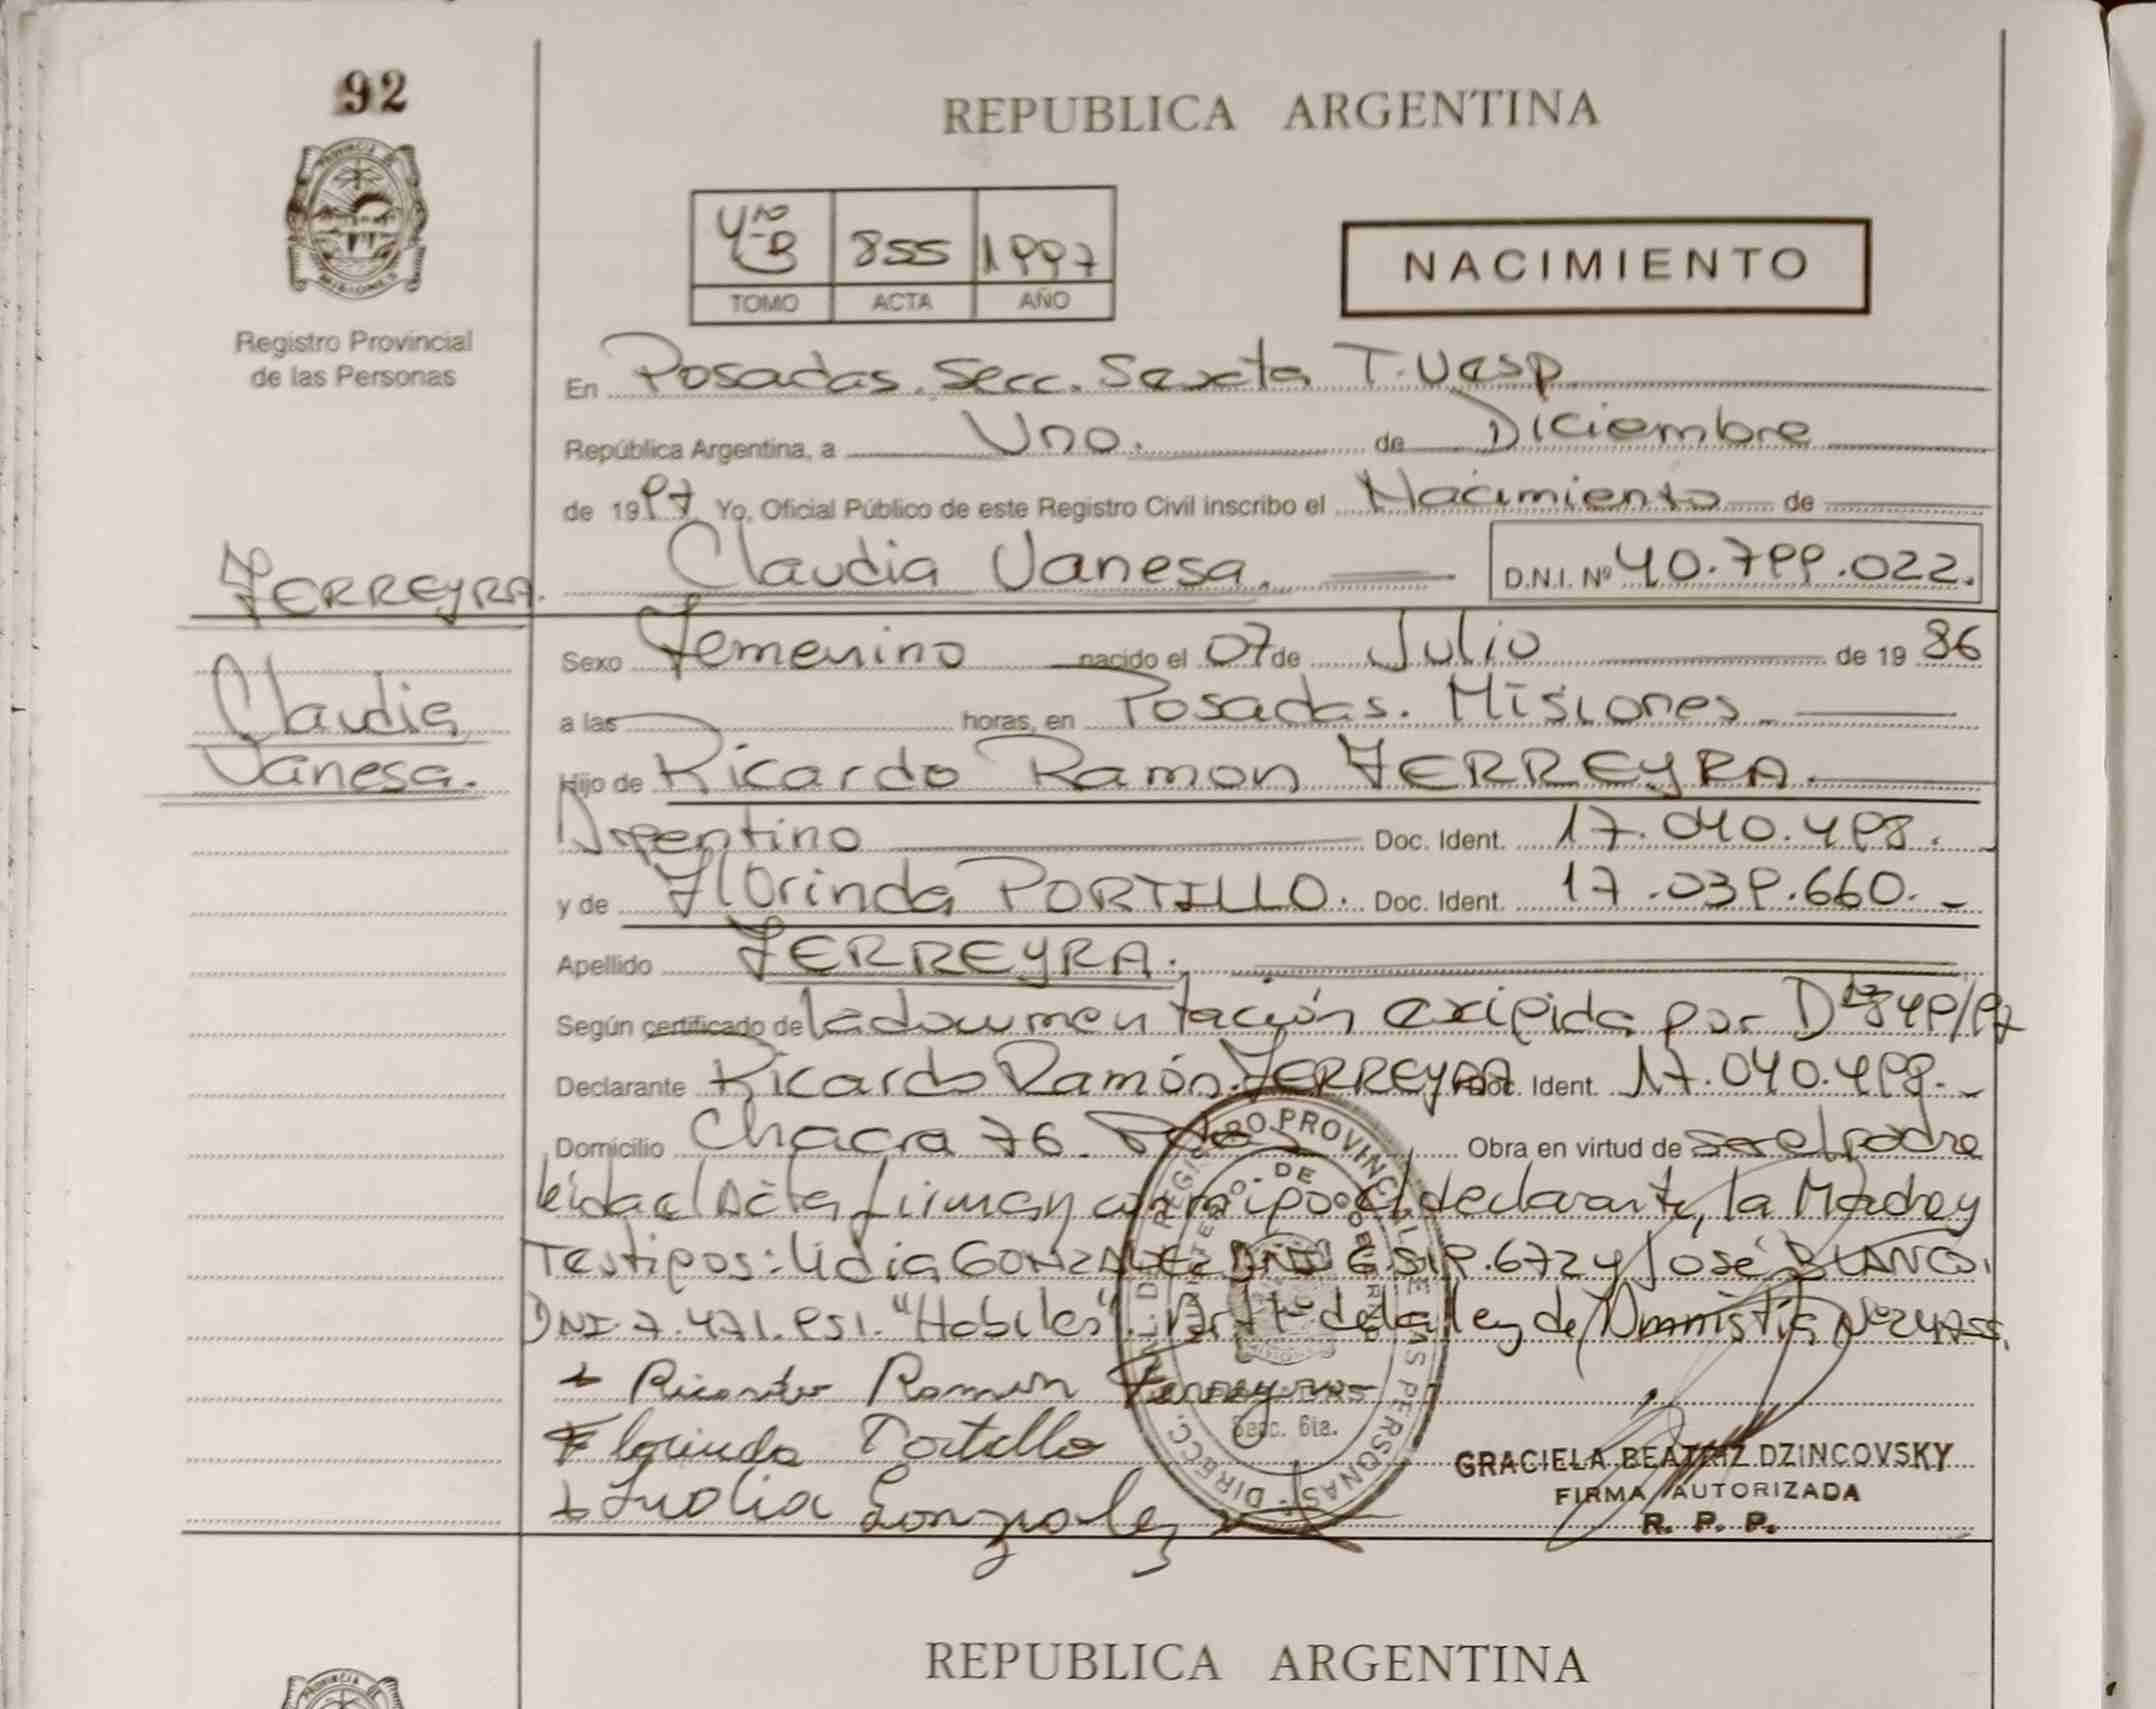 92
REPUBLICA ARGENTINA
PROVINCIA DE
MISIONES
4to B 855 1997
TOMO ACTA AÑO
NACIMIENTO
Registro Provincial
de las Personas
En Posadas. Secc. Sexta T. Vesp.
República Argentina, a Uno. de Diciembre
de 1997 Yo, Oficial Público de este Registro Civil inscribo el Nacimiento de
FERREYRA. Claudia Vanesa. D.N.I. Nº 40.799.022.
Sexo Femenino nacido el 07 de Julio de 19 86
Claudia
Vanesa.
a las horas, en Posadas. Misiones
Hijo de Ricardo Ramon FERREYRA.
Argentino Doc. Ident. 17.040.498.
y de Florinda PORTILLO. Doc. Ident. 17.039.660.
Apellido FERREYRA.
Según certificado de la documentación exigida por D 849/97
Declarante Ricardo Ramón FERREYRA Doc. Ident. 17.040.498.
Domicilio Chacra 76. Obra en virtud de ser el padre
leida el Acta firman conmigo el declarante, la Madre y
Testigos: Lidia GONZALEZ DNI 6.519.672 y José BLANCO.
DNI 7.471.951. "Habiles". de la ley de Amnistia
Ricardo Ramon Ferreyra
Florinda Portillo
Gonzalez
Secc. 6ta.
GRACIELA BEATRIZ DZINCOVSKY
FIRMA AUTORIZADA
R. P. P.
REPUBLICA ARGENTINA